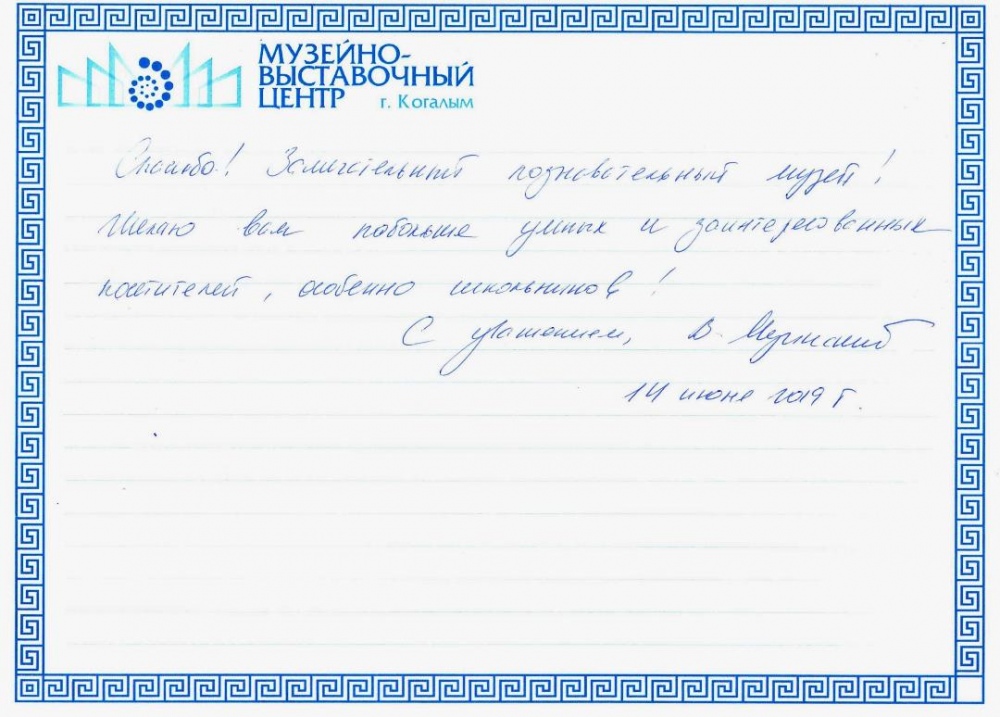 МУЗЕЙНО-
ВЫСТАВОЧНЫЙ
ЦЕНТР г. Когалым
Спасибо! Замечательный познавательный музей!
Желаю вам побольше умных и заинтересованных
посетителей, особенно школьников!
С уважением, В.
14 июня 2019 г.